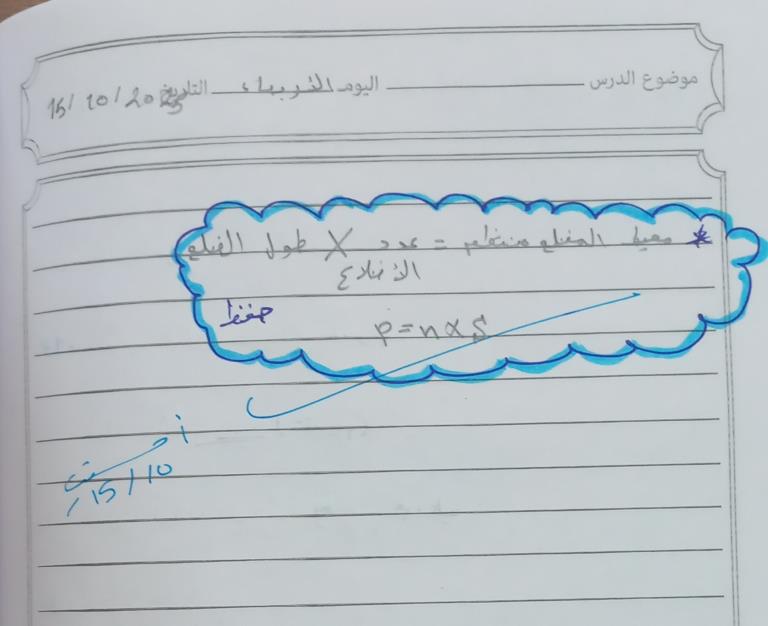 موضوع الدرس اليوم الاربعاء التاريخ 15/10/2025
* محيط المضلع منتظم = عدد X طول الضلع
الأضلاع
حفظ
P=n×S
أحسنت
15/10/